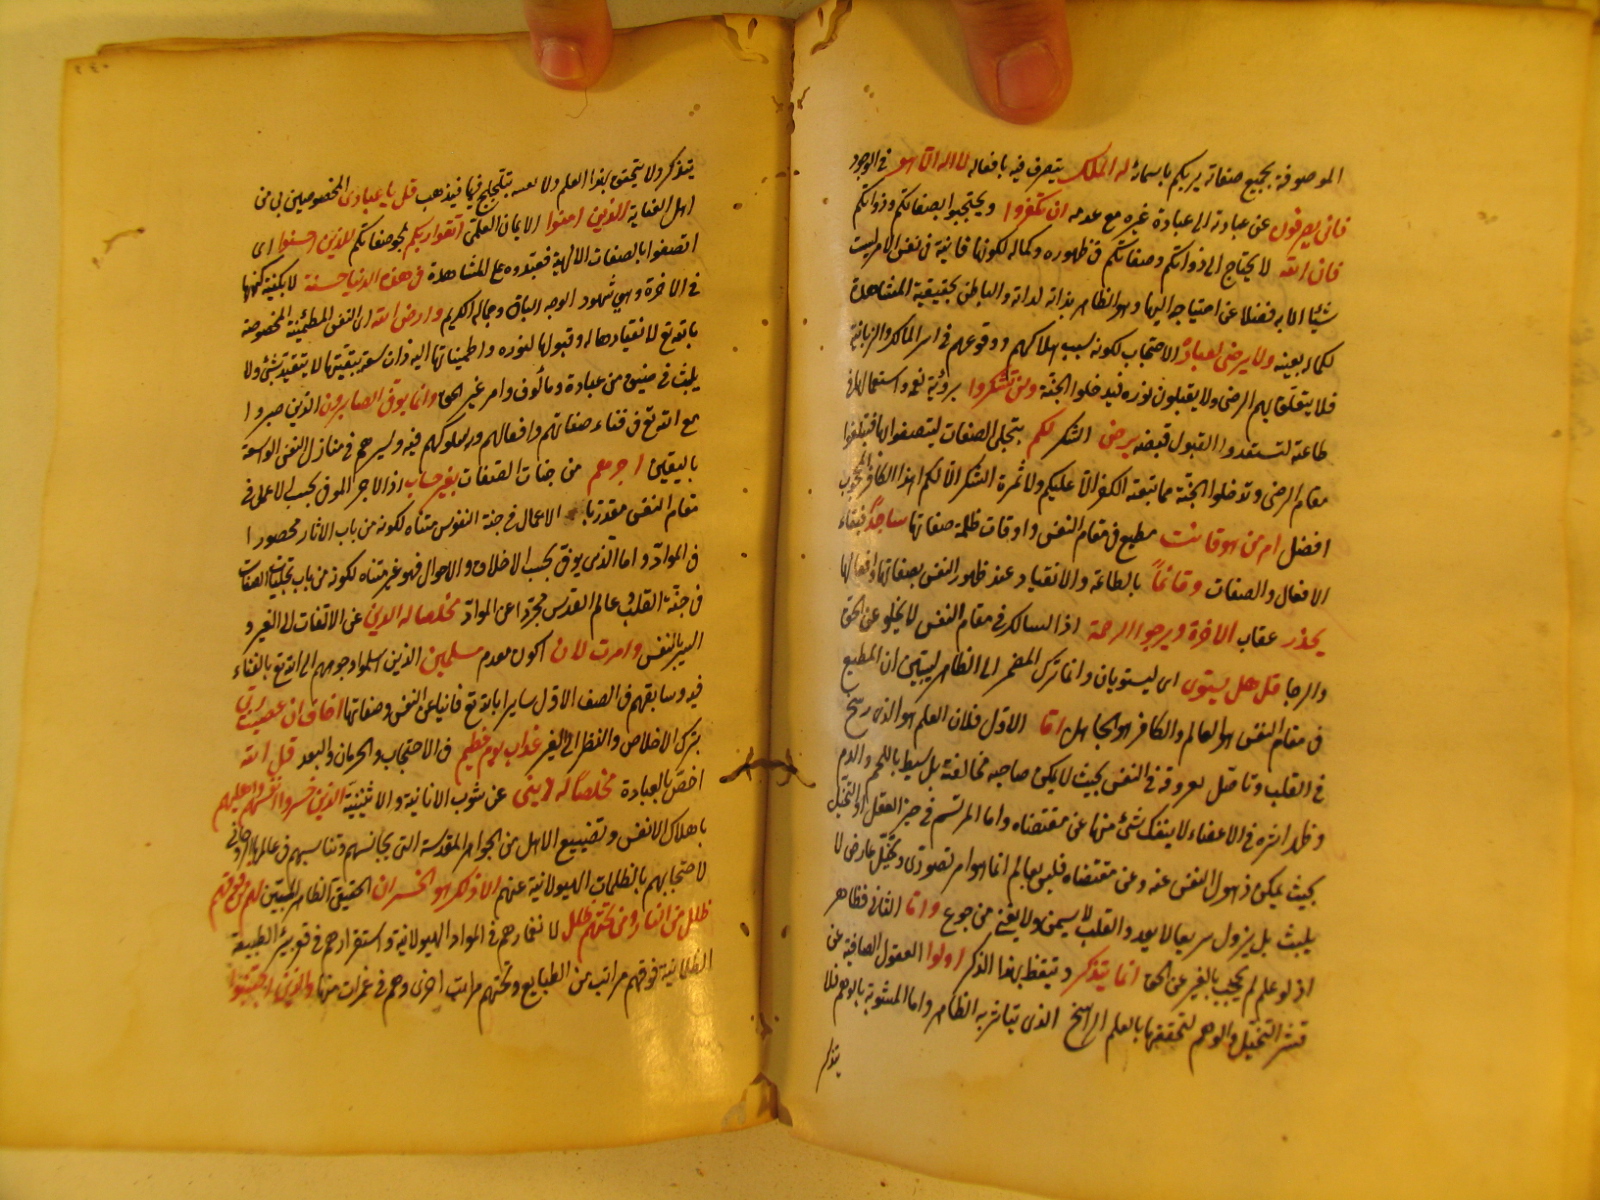 الموصوفة بجميع صفاته يربكم باسمائه له الملك يتصرف فيه بافعاله لا اله الا هو في الوجود
فانى تصرفون عن عبادته الى عبادة غيره مع عدمه ان تكفروا وتحتجبوا بصفاتكم وذواتكم
فان الله لا يحتاج الى ذواتكم وصفاتكم في ظهوره وكماله لكونها فانية في نفس الامر ليست
شيئا الا به فضلا عن احتياجه اليها وهو الظاهر بذاته لذاته والباطن بحقيقته المشاهدة
لكماله بعينه ولا يرضى لعباده الاحتجاب لكونه سبب هلاكهم ووقوعهم في اسر المالك والزبانية
فلا يتعلق بهم الرضى ولا يقبلون نوره فيدخلوا الجنة وان تشكروا برؤية نعمه واستعمالها في
طاعته لتستعدوا لقبول فيضه يرض الشكر لكم بتجلي الصفات لتتصفوا بها فتبلغوا
مقام الرضى وتدخلوا الجنة مما تبعة الكفر الا عليكم ولا ثمرة الشكر الا لكم اهذا الكافر المحجوب
افضل ام من هو قانت مطيع في مقام النفس واوقات ظلمة صفاتها ساجدا بفناء
الافعال والصفات وقائما بالطاعة والانقياد عند ظهور النفس بصفاتها وافعالها
يحذر عقاب الاخرة ويرجو الرحمة اذ السالك في مقام النفس لا يخلو عن الخوف
والرجا قل هل يستوى اى لا يستويان وانما ترك المضمر الى الظاهر ليتبين ان المطيع
في مقام النفس هو العالم والكافر هو الجاهل اما الاول فلان العلم هو الذي رسخ
في القلب وتاصل بعروقه في النفس بحيث لا يمكن صاحبه مخالفته بل سيط باللحم والدم
وظهر اثره في الاعضاء لا ينفك شئ منها عن مقتضاه واما المرتسم في حيز العقل والتخيل
بحيث يمكن ذهول النفس عنه وعن مقتضاه فليس بعلم انما هو امر تصورى وتخيل عارض لا
يلبث بل يزول سريعا لا يغذو القلب لا يسمن ولا يغنى من جوع واما الثاني فظاهر
اذ لو علم لم يحجب بالغير عن الحق انما يتذكر ويتعظ بهذا الذكر اولوا العقول الصافية عن
قشر التخيل والوهم لتحققها بالعلم الراسخ الذي يتاثر به الظاهر واما المشوبة بالوهم فلا
يتذكر
٢٤٠
يتذكر ولا يتحقق بهذا العلم ولا يعيه بتلجلج فيها فيذهب قل يا عبادى المخصوصين بى من
اهل العناية الذين امنوا الايمان العلمى اتقوا ربكم بمحو صفاتكم للذين احسنوا اى
اتصفوا بالصفات الالهية فعبدوه على المشاهدة في هذه الدنيا حسنة لا يكتنه كنهها
في الاخرة وهي شهود الوجه الباق وجماله الكريم وارض الله اى النفس المطمئنة المخصوصة
بالله تع لانقيادها له وقبولها لنوره واطمينانها اليه ذات سعة بيقينها لا يتقيد بشئ ولا
يلبث في ضيق من عبادة ومألوف وامر غير الحق وانما يوفى الصابرون الذين صبروا
مع الله تع في فناء صفاتهم وافعالهم وسلوكهم فيه وسيرهم في منازل النفس الواسعة
باليقين اجرهم من جنات الصفات بغير حساب اذ الاجر الموفى بحسب الاعمال في
مقام النفس مقدر بالاعمال في جنة النفوس متناه لكونه من باب الاثار محصورا
في المواد واما الذي يوفى بحسب الاخلاق والاحوال فهو غير متناه لكونه من باب تجليات الصفات
في جنة القلب وعالم القدس مجردا عن المواد مخلصا له الدين عن الالتفات الى الغير و
السير بالنفس وامرت لان اكون مقدم مسلمين الذين اسلموا وجوههم الى الله تع بالفناء
فيه وسابقهم في الصف الاول سايرا بالله تع فانيا عن النفس وصفاتها اخاف ان عصيت ربى
بترك الاخلاص والنظر الى الغير عذاب يوم عظيم في الاحتجاب والحرمان والبعد قل الله
اخص بالعبادة مخلصا له دينى عن شوب الانانية والاثنينية الذين خسروا انفسهم واهليهم
باهلاك الانفس وتضييع الاهل من الجواهر المقدسة التي يجانسهم وتناسبهم في عالمها الروحاني
لاحتجابهم بالظلمات الهيولانية عنهم الا ذلك هو الخسران الحقيقي الظاهر المبين لهم من فوقهم
ظلل من النار ومن تحتهم ظلل لانغمارهم في المواد الهيولانية واستقرارهم في قعر بئر الطبيعة
الظلمانية فوقهم مراتب من الطبايع وتحتهم مراتب اخرى وهم في غمرات منها والذين اجتنبوا